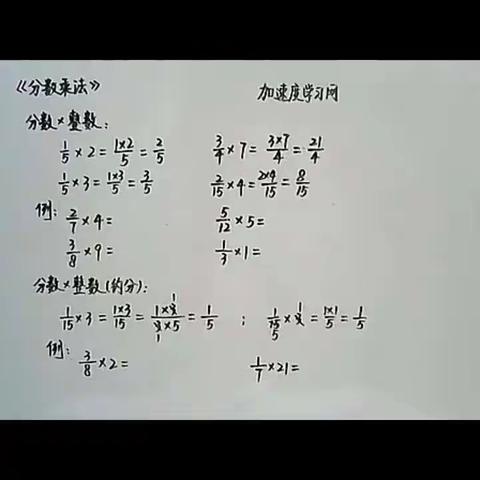 《分数乘法》 加速度学习网
分数×整数:
1/5 × 2 = 1×2/5 = 2/5 3/4 × 7 = 3×7/4 = 21/4
1/5 × 3 = 1×3/5 = 3/5 2/15 × 4 = 2×4/15 = 8/15
例: 2/7 × 4 = 5/12 × 5 =
3/8 × 9 = 1/3 × 1 =
分数×整数(约分):
1/15 × 3 = 1×3/15 = 1×3 1/3×5 1 = 1/5 ; 1/15 5 × 3 1 = 1×1/5 = 1/5
例: 3/8 × 2 = 1/7 × 21 =